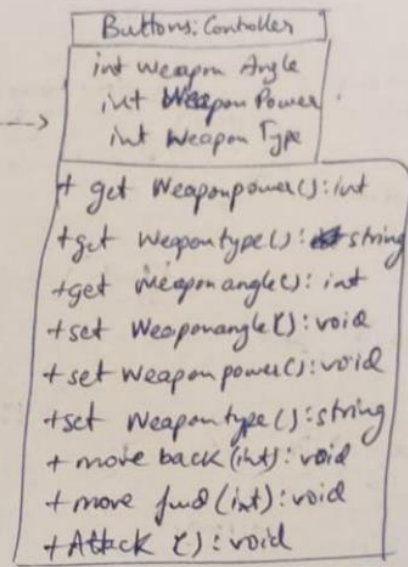 Buttons: Controller
int Weapon Angle
int Weapon Power
int Weapon Type
+ get Weaponpower(): int
+get Weapontype(): string
+get Weapon angle(): int
+set Weaponangle(): void
+set weapon power(): void
+set Weapon type(): string
+ move back (int): void
+ move fwd (int): void
+Attack (): void